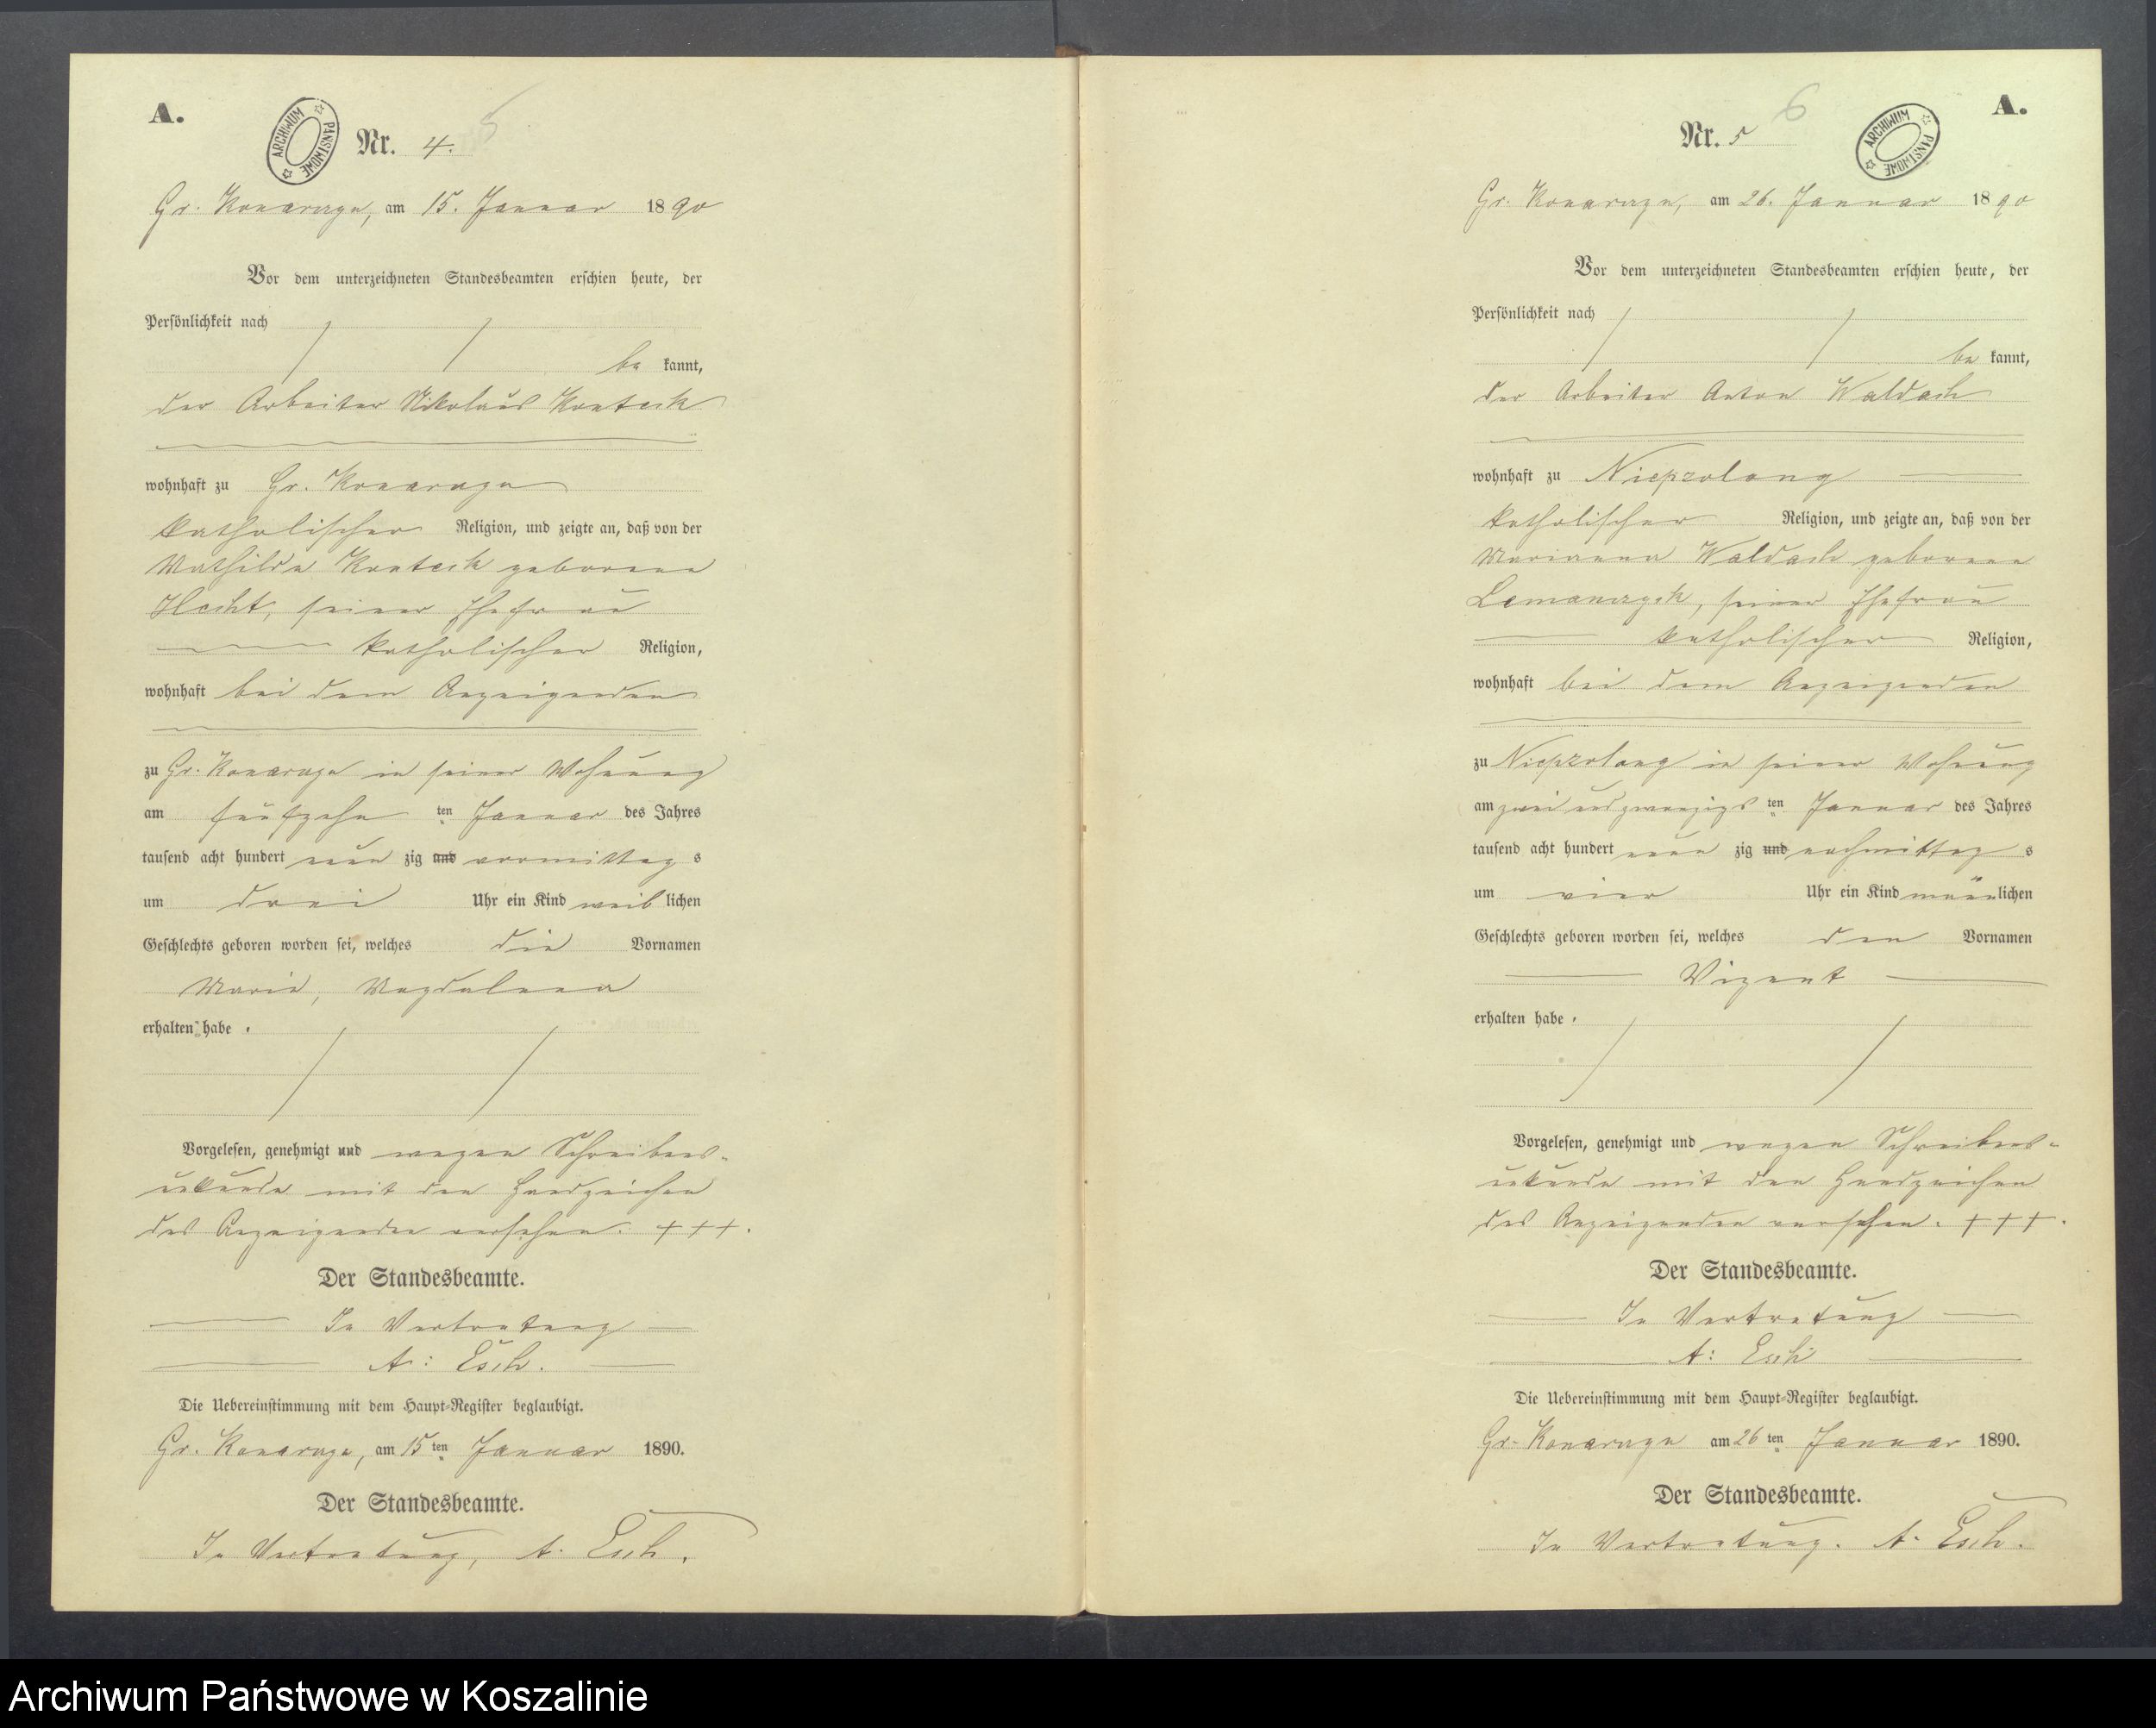 A.
ARCHIWUM PAŃSTWOWE
Nr. 4.
5
Gr. Konarczyn, am 15. Januar 1890
Vor dem unterzeichneten Standesbeamten erschien heute, der
Persönlichkeit nach
be kannt,
der Arbeiter Nikolaus Kontech
wohnhaft zu Gr. Konarczyn
katholischer Religion, und zeigte an, daß von der
Mathilde Kontech geborene
Hecht, seiner Ehefrau
katholischer Religion,
wohnhaft bei dem Anzeigenden
zu Gr. Konarczyn in seiner Wohnung
am fünfzehn ten Januar des Jahres
tausend acht hundert neun zig und vormittag s
um drei Uhr ein Kind weib lichen
Geschlechts geboren worden sei, welches die Vornamen
Marie, Magdalena
erhalten habe.
Vorgelesen, genehmigt und wegen Schreibens-
unkunde mit den Handzeichen
des Anzeigenden versehen. +++.
Der Standesbeamte.
In Vertretung
A: Esch.
Die Uebereinstimmung mit dem Haupt-Register beglaubigt.
Gr. Konarczyn, am 15 ten Januar 1890.
Der Standesbeamte.
In Vertretung, A. Esch.
A.
6
ARCHIWUM PAŃSTWOWE
Nr. 5
Gr. Konarczyn, am 26. Januar 1890
Vor dem unterzeichneten Standesbeamten erschien heute, der
Persönlichkeit nach
be kannt,
der Arbeiter Anton Waldach
wohnhaft zu Niepzolong
katholischer Religion, und zeigte an, daß von der
Marianna Waldach geborene
Lemanczyk, seiner Ehefrau
katholischer Religion,
wohnhaft bei dem Anzeigenden
zu Niepzolong in seiner Wohnung
am zwei und zwanzigs ten Januar des Jahres
tausend acht hundert neun zig und nachmittag s
um vier Uhr ein Kind männlichen
Geschlechts geboren worden sei, welches den Vornamen
Vizent
erhalten habe.
Vorgelesen, genehmigt und wegen Schreibens-
unkunde mit den Handzeichen
des Anzeigenden versehen. +++.
Der Standesbeamte.
In Vertretung
A: Esch
Die Uebereinstimmung mit dem Haupt-Register beglaubigt.
Gr. Konarczyn am 26 ten Januar 1890.
Der Standesbeamte.
In Vertretung. A. Esch.
Archiwum Państwowe w Koszalinie